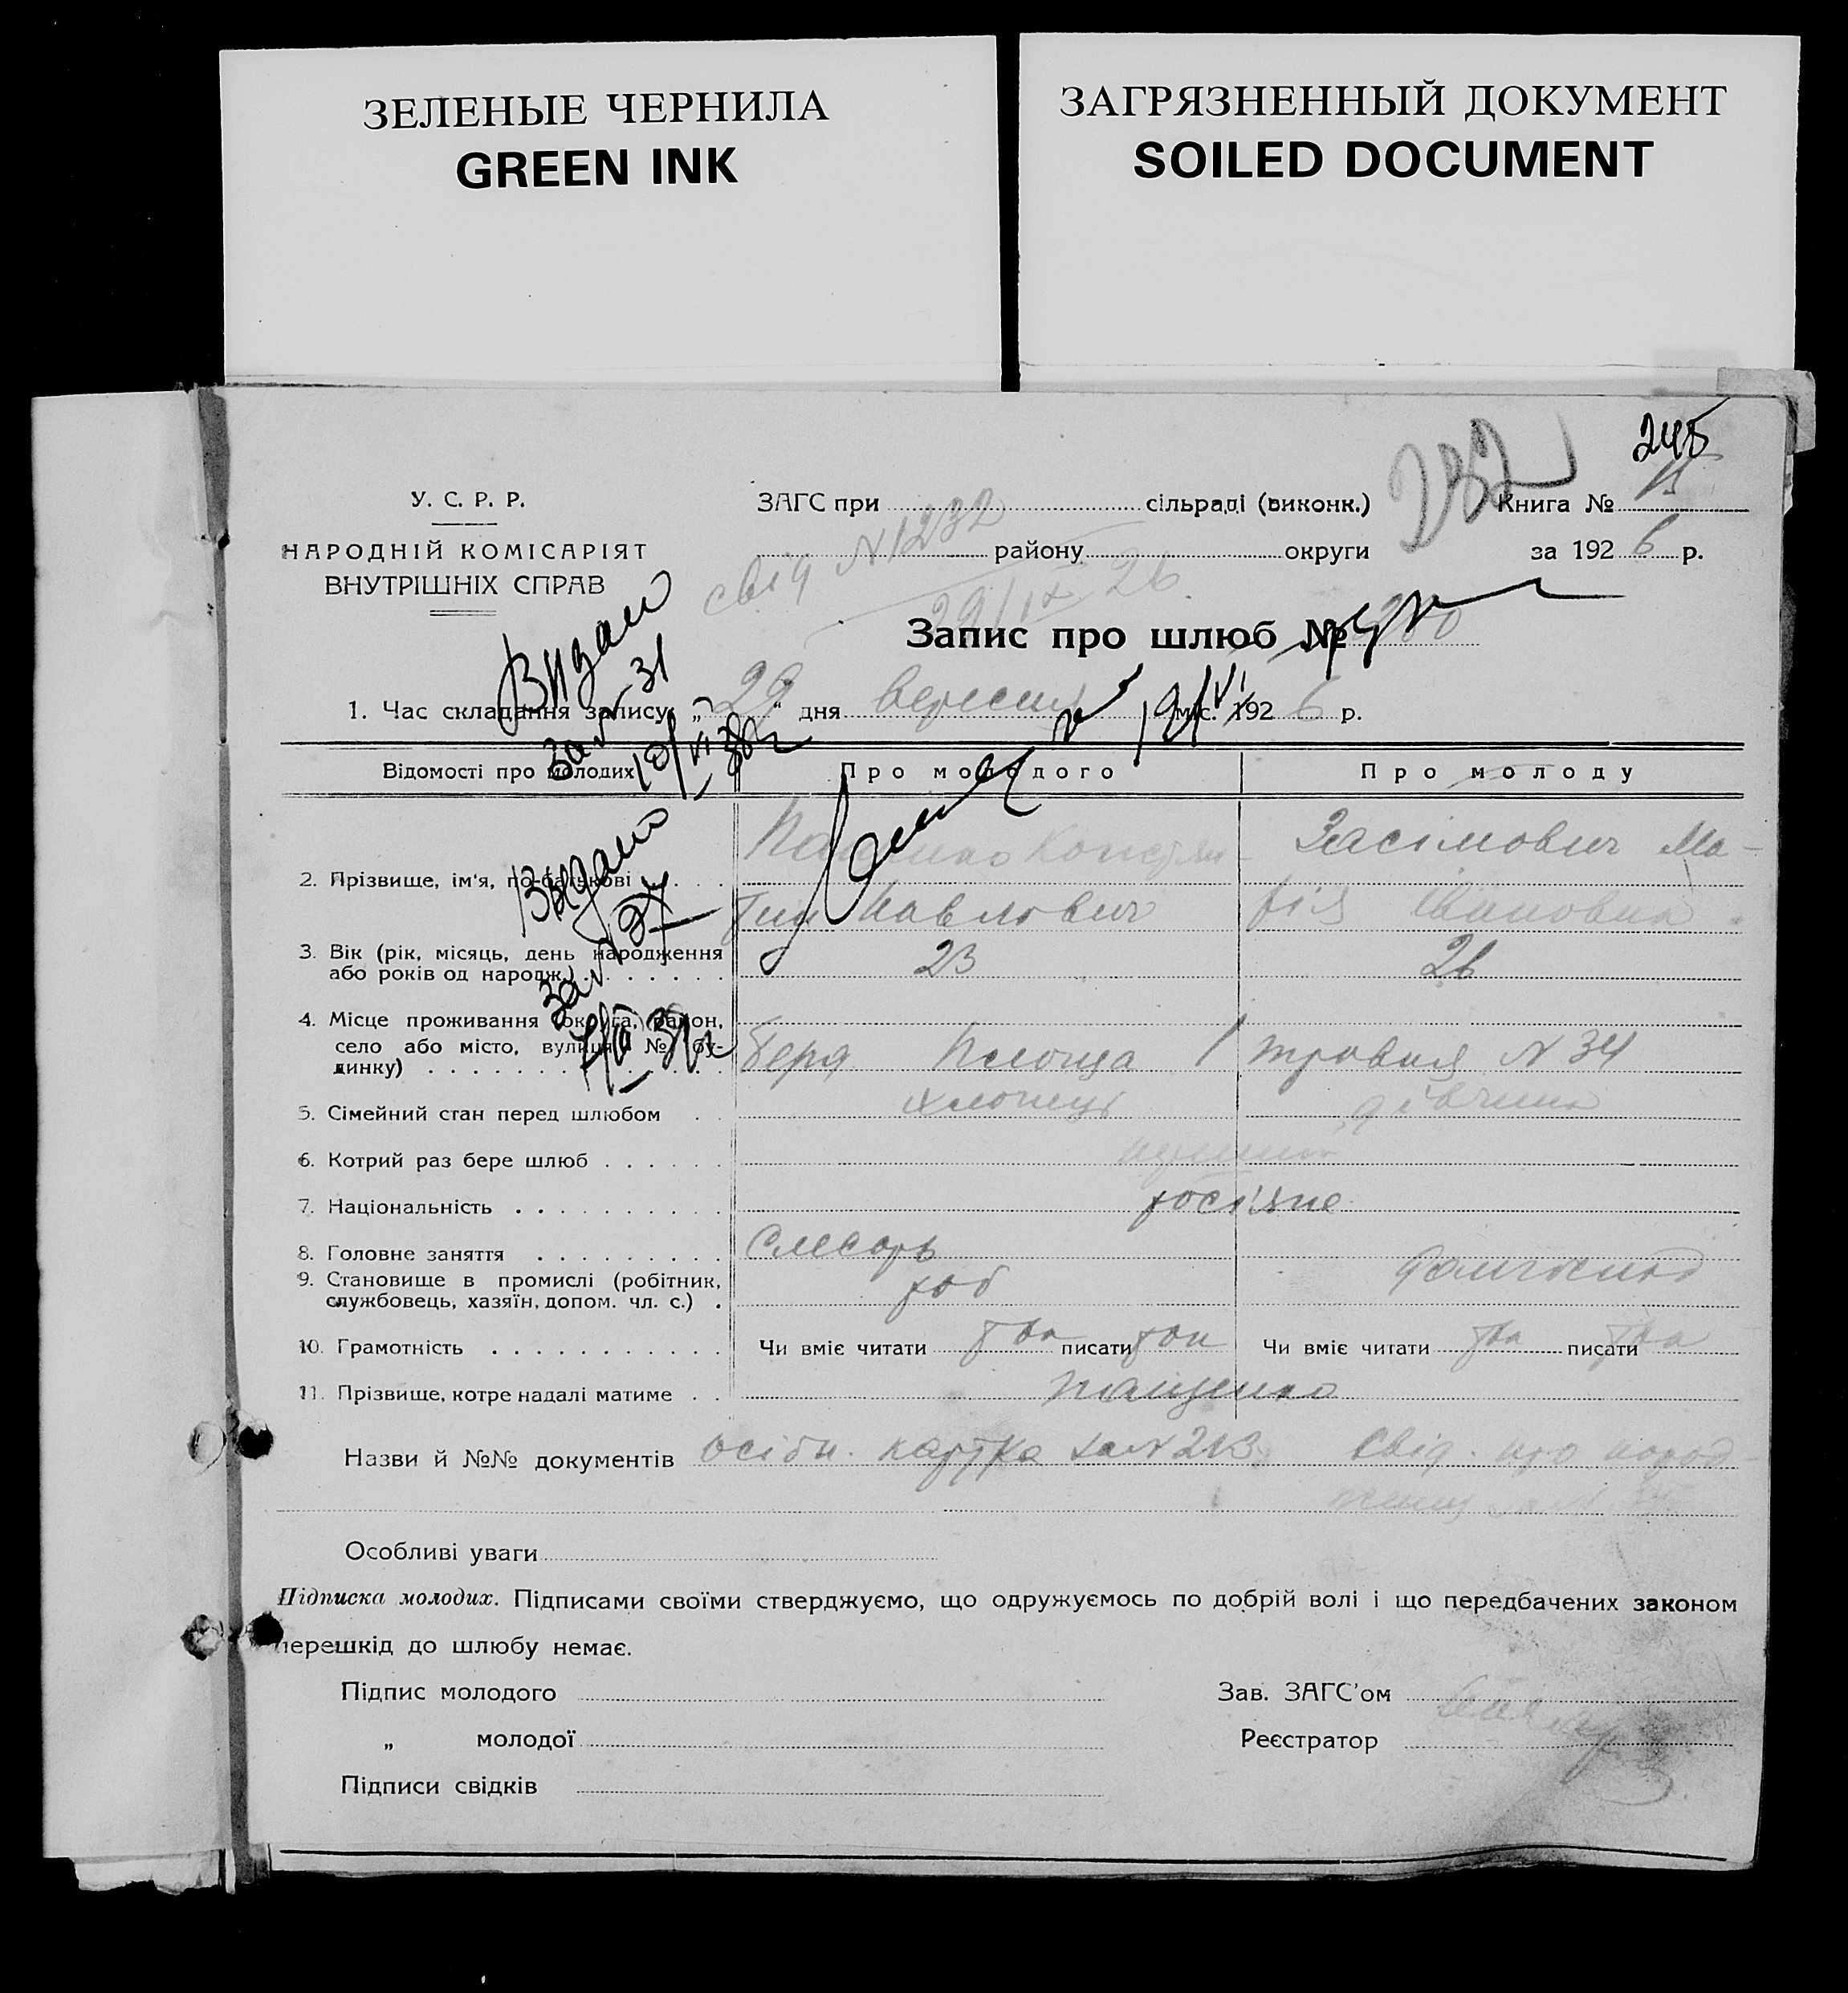 ЗЕЛЕНЫЕ ЧЕРНИЛА
GREEN INK
ЗАГРЯЗНЕННЫЙ ДОКУМЕНТ
SOILED DOCUMENT
245
232
У. С. Р. Р.
НАРОДНІЙ КОМІСАРІЯТ
ВНУТРІШНІХ СПРАВ
ЗАГС при сільраді (виконк.) Книга №
району округи за 192 6 р.
свід N 1232
29/IX 26.
Запис про шлюб №
1. Час складання запису „ 29 “ дня вересня міс. 192 6 р.
Видано
за N 31
19/VI 38
Відомості про молодих
Про молодого
Про молоду
Видано
за N
2. Прізвище, ім'я, по-батькові . . . .
Пащенко Констян-
тин Павлович
Засімович Ма-
рія Івановна
3. Вік (рік, місяць, день народження
або років од народж.) . . . . . . .
23
26
4. Місце проживання (округа, район,
село або місто, вулиця і № бу-
динку) . . . . . . . . . . . . . .
Площа 1 травня N 34
5. Сімейний стан перед шлюбом . .
хлопець
дівчина
6. Котрий раз бере шлюб . . . . . .
7. Національність . . . . . . . . . .
росіяне
8. Головне заняття . . . . . . . . .
Слесарь
9. Становище в промислі (робітник,
службовець, хазяїн, допом. чл. с.) .
роб
домгоспод
10. Грамотність . . . . . . . . . . .
Чи вміє читати писати
Чи вміє читати писати
11. Прізвище, котре надалі матиме . .
Пащенко
Назви й №№ документів осібн. картка за N 213 Свід. про народ-
ження
Особливі уваги
Підписка молодих. Підписами своїми стверджуємо, що одружуємось по добрій волі і що передбачених законом
перешкід до шлюбу немає.
Підпис молодого Зав. ЗАГС'ом
„ молодої Реєстратор
Підписи свідків